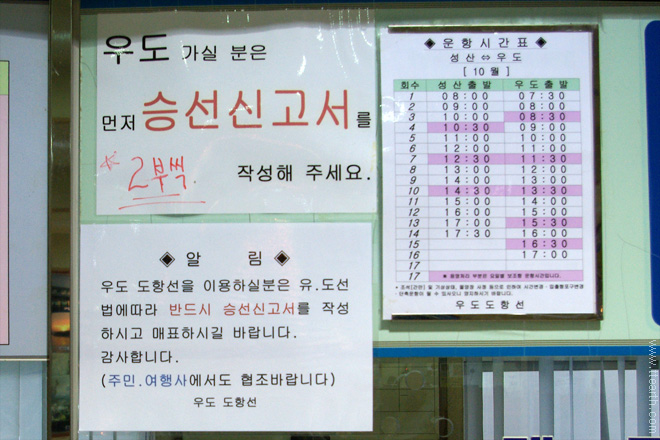 우도 가실 분은
먼저 승선신고서를
* 2부씩.
작성해 주세요.
◈ 알 림 ◈
우도 도항선을 이용하실분은 유.도선
법에따라 반드시 승선신고서를 작성
하시고 매표하시길 바랍니다.
감사합니다.
(주민.여행사에서도 협조바랍니다)
우도 도항선
◈ 운항시간표 ◈
성산 ⇔ 우도
[ 10월 ]
회수 성산출발 우도출발
1 08:00 07:30
2 09:00 08:00
3 10:00 08:30
4 10:30 09:00
5 11:00 10:00
6 12:00 11:00
7 12:30 11:30
8 13:00 12:00
9 14:00 13:00
10 14:30 13:30
11 15:00 14:00
12 16:00 15:00
13 17:00 15:30
14 17:30 16:00
15 16:30
16 17:00
17
17
우도도항선
www.ttearth.com